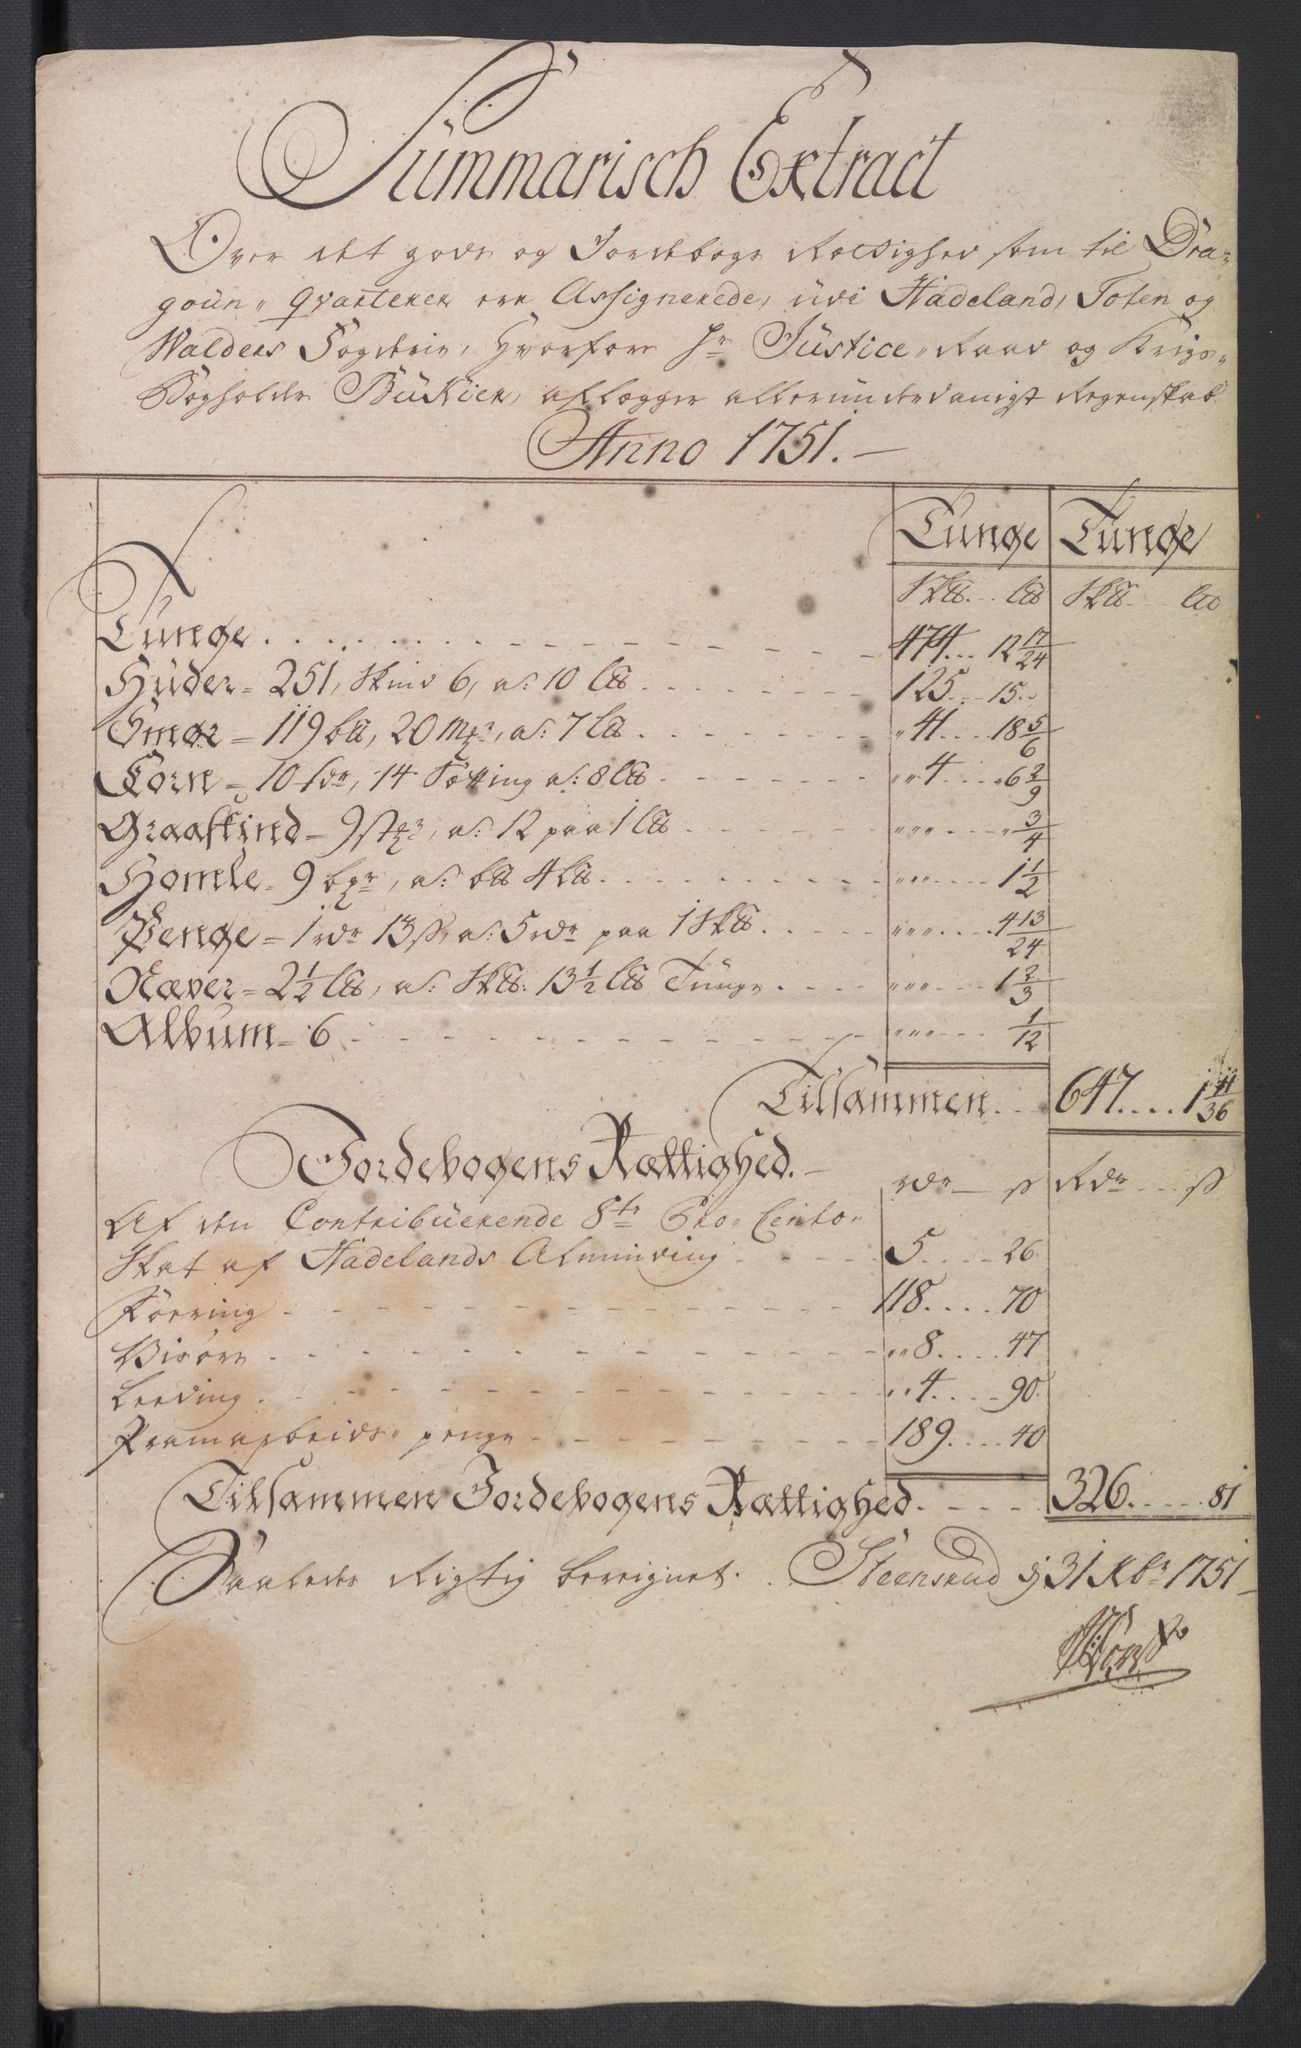 Summarisch Extract
Over det gods og Jordebogs Rættighed som til Dra-
goun-qvarterer ere Assignerede, udi Hadeland, Toten og
Walders Fogderie, Hvorfore Hr Justice-Raad og Krigs-
Bogholder aflægger allerunderdanigst Regenskab
Anno 1751.
Tunge Tunge
Skt lt Skt lt
Tunge 474 12 17/24
Huder = 251, skind 6, a: 10 lt 125 15
Smør = 119 bt, 20 mk, a: 7 lt 41 18 5/6
Korn = 10 tdr, 14 Sötting a: 8 lt 4 6 2/9
Graaskind = 9 stkr, a: 12 paa 1 lt 3/4
Homle = 9 bpr, a: bt 4 lt 1 1/2
Penge = 1 rdr 13 ß, a: 5 rdr paa 1 Skt 4 13/24
Næver = 2 1/2 lt, a: Skt: 13 1/2 lt Tunge 1 2/3
Album = 6 1/12
Tilsammen 647 1 11/36
Jordebogens Rættighed. rdr ß Rdr ß
Af den Contribuerende 8te Pro-Cento-
Skat af Hadelands Alminding 5 26
Foering 118 70
Visöre 8 47
Leeding 4 90
Framarbeids-penge 189 40
Tilsammen Jordebogens Rættighed 326 81
Saaledes Rigtig bereignet. Steensrud d 31 Xbr 1751